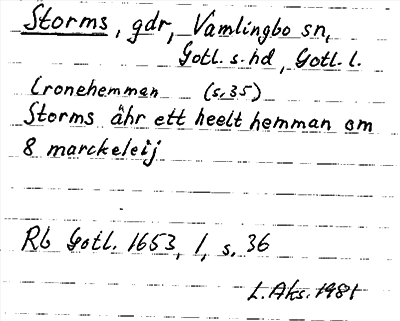 Storms, gdr, Vamlingbo sn,
Gotl. s. hd, Gotl. l.
Cronehemman (s. 35)
Storms ähr ett heelt hemman om
8 marckeleij
Rb Gotl. 1653, 1, s. 36
L. Aks. 1981